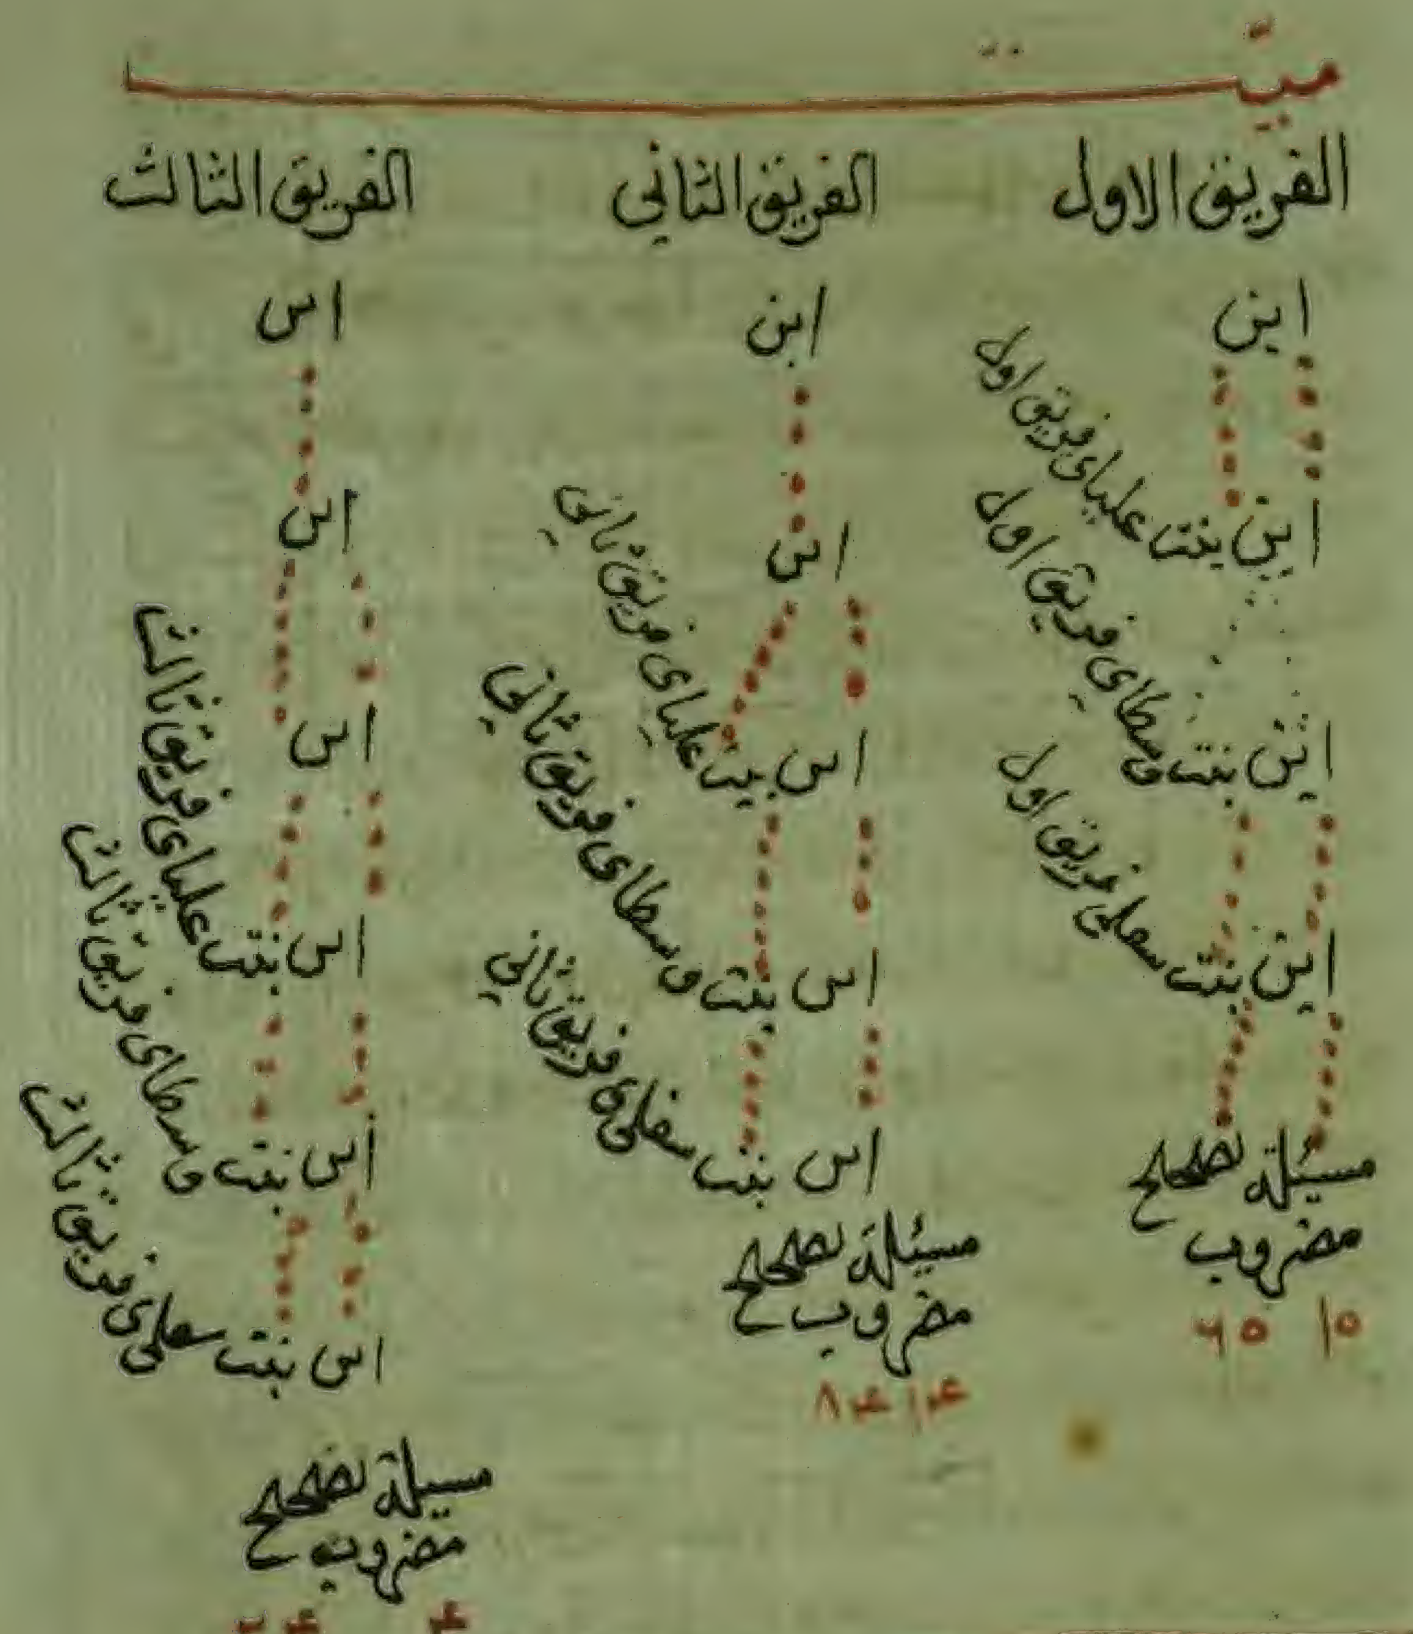 ميّت
الفريق الاول
ابن
ابن بنت علياى فريق اول
ابن بنت وسطاى فريق اول
ابن بنت سفلى فريق اول
مسئلة تصحيح
مضروب
الفريق الثاني
ابن
ابن
ابن علياى فريق ثاني
ابن بنت وسطاى فريق ثاني
ابن بنت سفلى فريق ثاني
مسئلة تصحيح
مضروب
الفريق الثالث
ابن
ابن
ابن
ابن بنت علياى فريق ثالث
ابن بنت وسطاى فريق ثالث
ابن بنت سفلى فريق ثالث
مسيلة تصحيح
مضروب